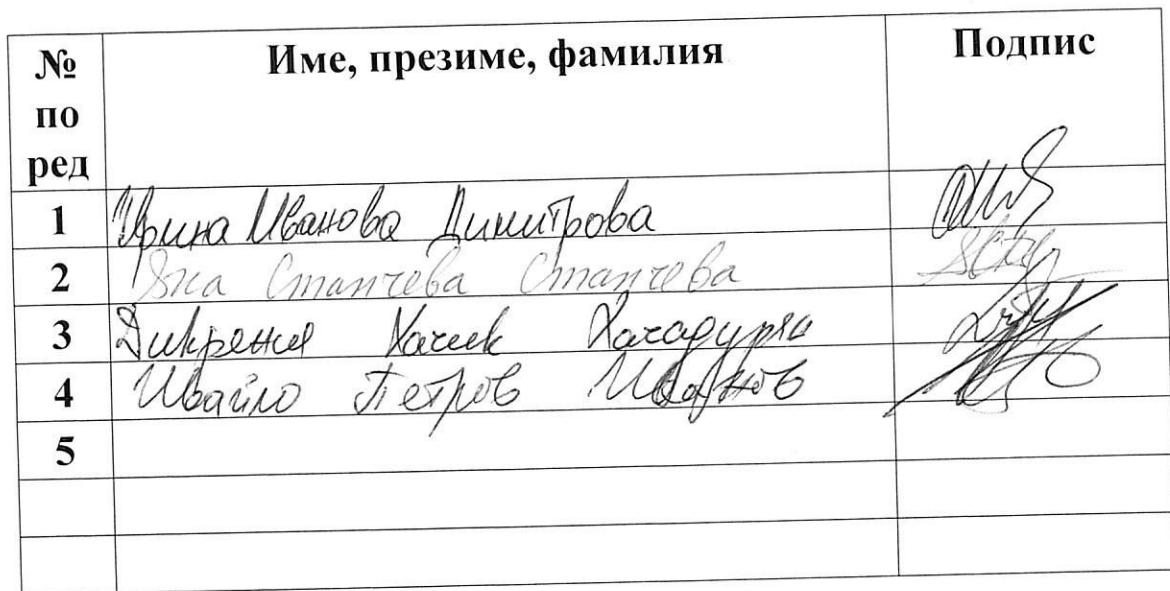 № по ред Име, презиме, фамилия Подпис
1 Ирина Иванова Димитрова
2 Яна Станчева Станчева
3 Дикрения Хачик Хачадурян
4 Ивайло Петров Иванов
5